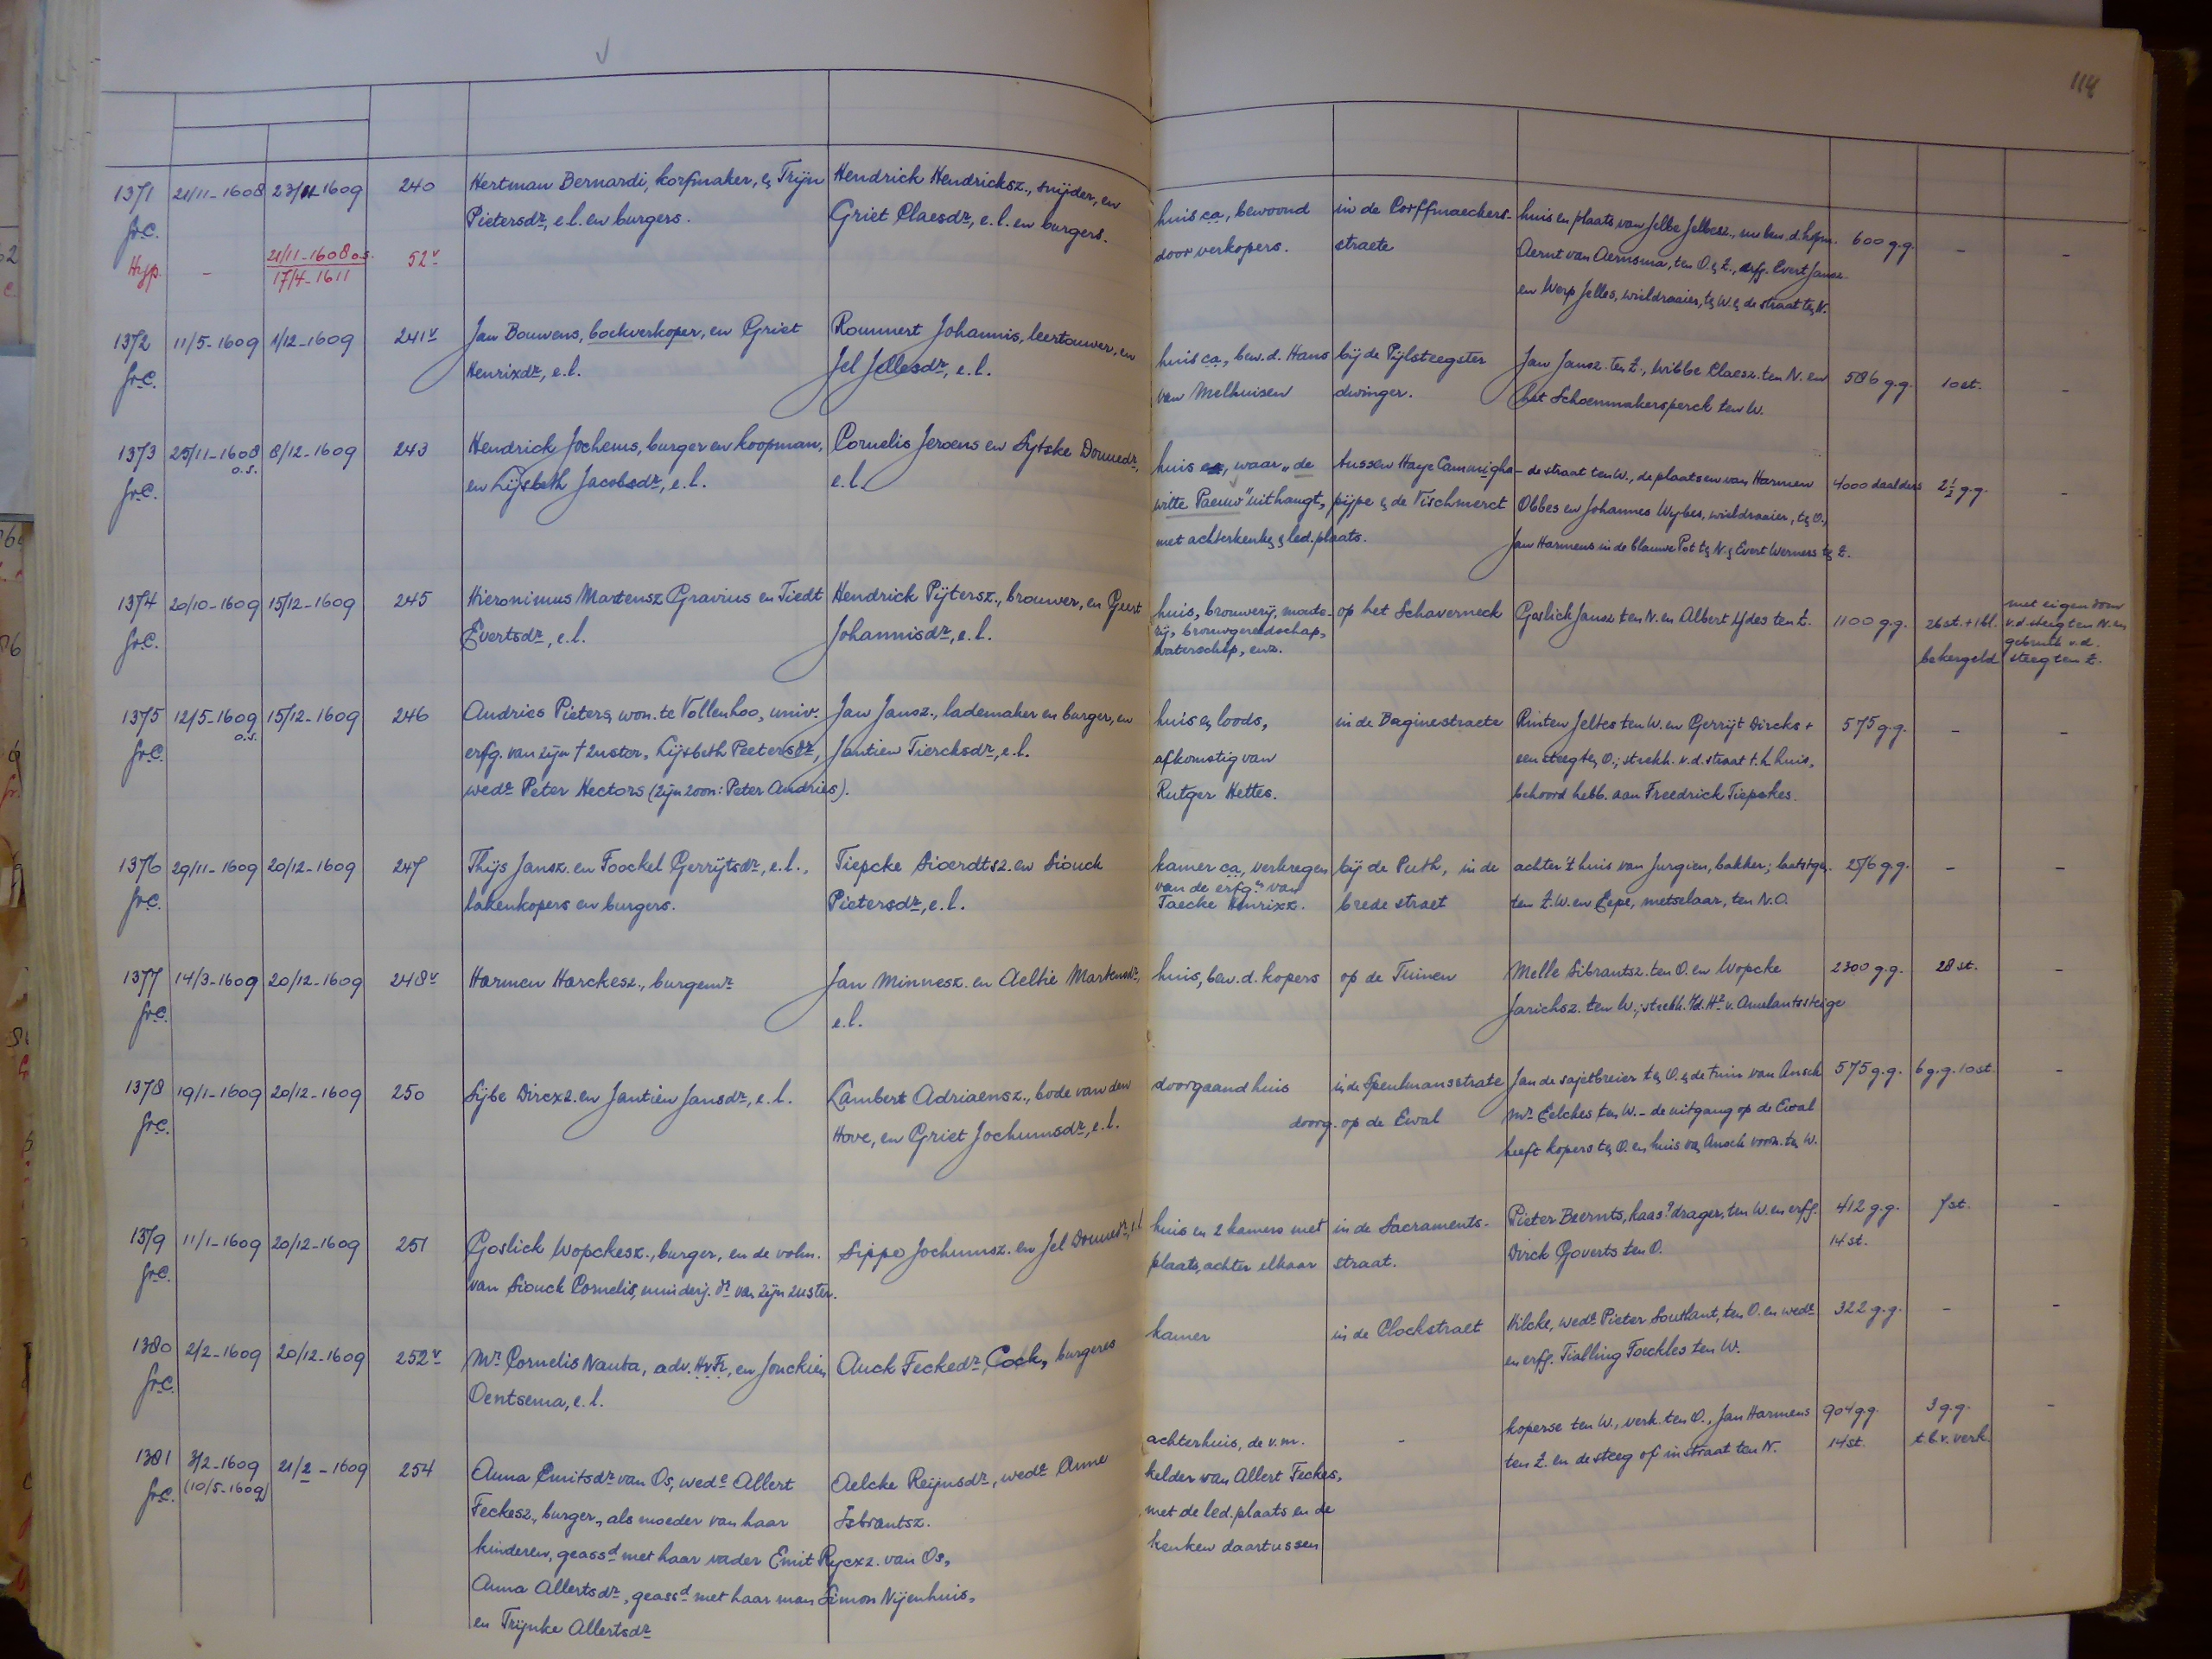 114
1371 21/11-1608 23/11-1609 240 Hertman Bernardi, korfmaker, en Trijn Hendrick Hendricksz., snijder, en huis ca, bewoond in de Corffmaeckers- huis en plaats van Jelbe Jelbesz., nu bew. d. hopm. 600 g.g. - -
fr.C. Pietersdr, e.l. en burgers. Griet Claesdr, e.l. en burgers. door verkopers. straete Aernt van Aernsma, ten O. en Z., erfg. Evert Jansz.
Hyp. - 21/11-1608 o.s. 52v en Worp Jelles, wieldraaier, ten W. en de straat ten N.
17/4-1611
1372 11/5-1609 1/12-1609 241v Jan Bouwens, boekverkoper, en Griet Rommert Johannis, leertouwer, en huis ca, bew. d. Hans bij de Pijlsteegster Jan Jansz. ten Z., Wibbe Claesz. ten N. en 586 g.g. 10 st. -
fr.C. Henrixdr, e.l. Jel Jellesdr, e.l. van Melhuisen dwinger. het Schoenmakersperck ten W.
1373 25/11-1608 8/12-1609 243 Hendrick Jochems, burger en koopman, Cornelis Jeroens en Sytske Douwedr, huis, waar "de tussen Haye Cammigha- de straat ten W., de plaatsen van Harmen 4000 daalders 2½ g.g. -
o.s.
fr.C. en Lijsbeth Jacobsdr, e.l. e.l. witte Paeuw" uithangt, pijpe en de Vischmerct Obbes en Johannes Wybes, wieldraaier, ten O.,
met achterkenk. en led. plaats. Jan Harmens in de blauwe Pot ten N. en Evert Werners ten Z.
1374 20/10-1609 15/12-1609 245 Hieronimus Martensz Gravius en Tiedt Hendrick Pijtersz., brouwer, en Geert huis, brouwerij, moute- op het Schaverneck Goslick Jansz ten N. en Albert Ydes ten Z. 1100 g.g. 26 st. + 1 bl. met eigendom
fr.C. Evertsdr, e.l. Johannisdr, e.l. rij, brouwgereedschap, bekergeld v.d. steeg ten N. en
waterschip, enz. gebruik v.d.
steeg ten Z.
1375 12/5-1609 15/12-1609 246 Andries Pieters, won. te Vollenhoo, univ. Jan Jansz., lademaker en burger, en huis en loods, in de Baginestraete Rinten Jeltes ten W. en Gerrijt Dircks + 575 g.g. - -
o.s.
fr.C. erfg. van zijn † zuster, Lijsbeth Peetersdr, Jantien Tiercksdr, e.l. afkomstig van een steeg ten O.; strekk. v.d. straat t.h. huis,
wedr Peter Hectors (zijn zoon: Peter Andries). Rutger Hettes. behoord hebb. aan Freedrick Tiepckes.
1376 29/11-1609 20/12-1609 247 Thijs Jansz. en Foockel Gerrijtsdr, e.l., Tiepcke Sioerdtsz. en Siouck kamer ca, verkregen bij de Puth, in de achter 't huis van Jurgien, bakker; laatstgen. 276 g.g. - -
fr.C. lakenkopers en burgers. Pietersdr, e.l. van de erfgn van brede straet ten Z.W. en Eepe, metselaar, ten N.O.
Taecke Henrixz.
1377 14/3-1609 20/12-1609 248v Harmen Harckesz., burgemr Jan Minnesz. en Aeltie Martensdr, huis, bew. d. kopers op de Tuinen Melle Sibrantsz. ten O. en Wopcke 2300 g.g. 28 st. -
fr.C. e.l. Jarichsz. ten W.; strekk. t/d. Hr v. Amelantssteige
1378 19/1-1609 20/12-1609 250 Sijbe Dircxz. en Jantien Jansdr, e.l. Lambert Adriaensz., bode van den doorgaand huis in de Speulmansstrate Jan de sajetbreier ten O. en de tuin van Ansck 575 g.g. 6 g.g. 10 st. -
fr.C. Hove, en Griet Jochumsdr, e.l. doorg. op de Ewal Mr Eelckes ten W. - de uitgang op de Ewal
heeft kopers ten O. en huis van Ansck voorn. ten W.
1379 11/1-1609 20/12-1609 251 Goslick Wopckesz., burger, en de volm. Sippe Jochumsz. en Jel Douwedr, e.l. huis en 2 kamers met in de Sacraments- Pieter Beernts, kaas? drager, ten W. en erfg. 412 g.g. 7 st. -
fr.C. van Siouck Cornelis, minderj. dr van zijn zuster. plaats, achter elkaar straat. Dirck Goverts ten O. 14 st.
1380 2/2-1609 20/12-1609 252v Mr Cornelis Nauta, adv. HvFr, en Jouckien Auck Feckedr Cock, burgeres kamer in de Clockstraet Hilcke, wedr Pieter Soutkant, ten O. en wedr 322 g.g. - -
fr.C. Oentsema, e.l. en erfg. Tialling Fockles ten W.
1381 3/2-1609 21/2-1609 254 Anna Emitsdr van Os, wede Allert Aelcke Reijnsdr, wedr Anne achterhuis, de v.m. - koperse ten W., verk. ten O., Jan Harmens 904 g.g. 3 g.g. -
fr.C. (10/5-1609) Feckesz., burger, als moeder van haar Isbrantsz. kelder van Allert Feckes, ten Z. en de steeg of in straat ten N. 14 st. t.b.v. verk.
kinderen, geassd met haar vader Emit Rycxz. van Os, met de led. plaats en de
Anna Allertsdr, geassd met haar man Simon Nijenhuis, keuken daartussen
en Trijnke Allertsdr